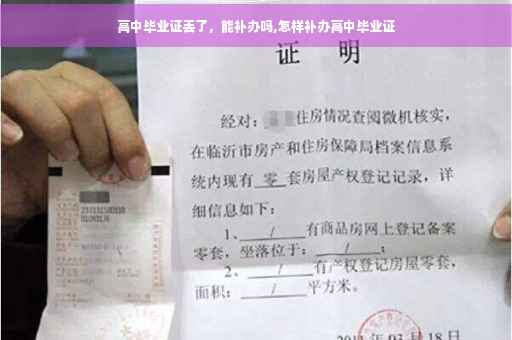 高中毕业证丢了，能补办吗,怎样补办高中毕业证
证 明
经对：住房情况查阅微机核实，
在临沂市房产和住房保障局档案信息系
统内现有 零 套房屋产权登记记录，详
细信息如下：
1、 / 有商品房网上登记备案
零套，坐落位于： / ；
2、 / 有产权登记房屋零套，
面积： / 平方米。
03 月 18 日